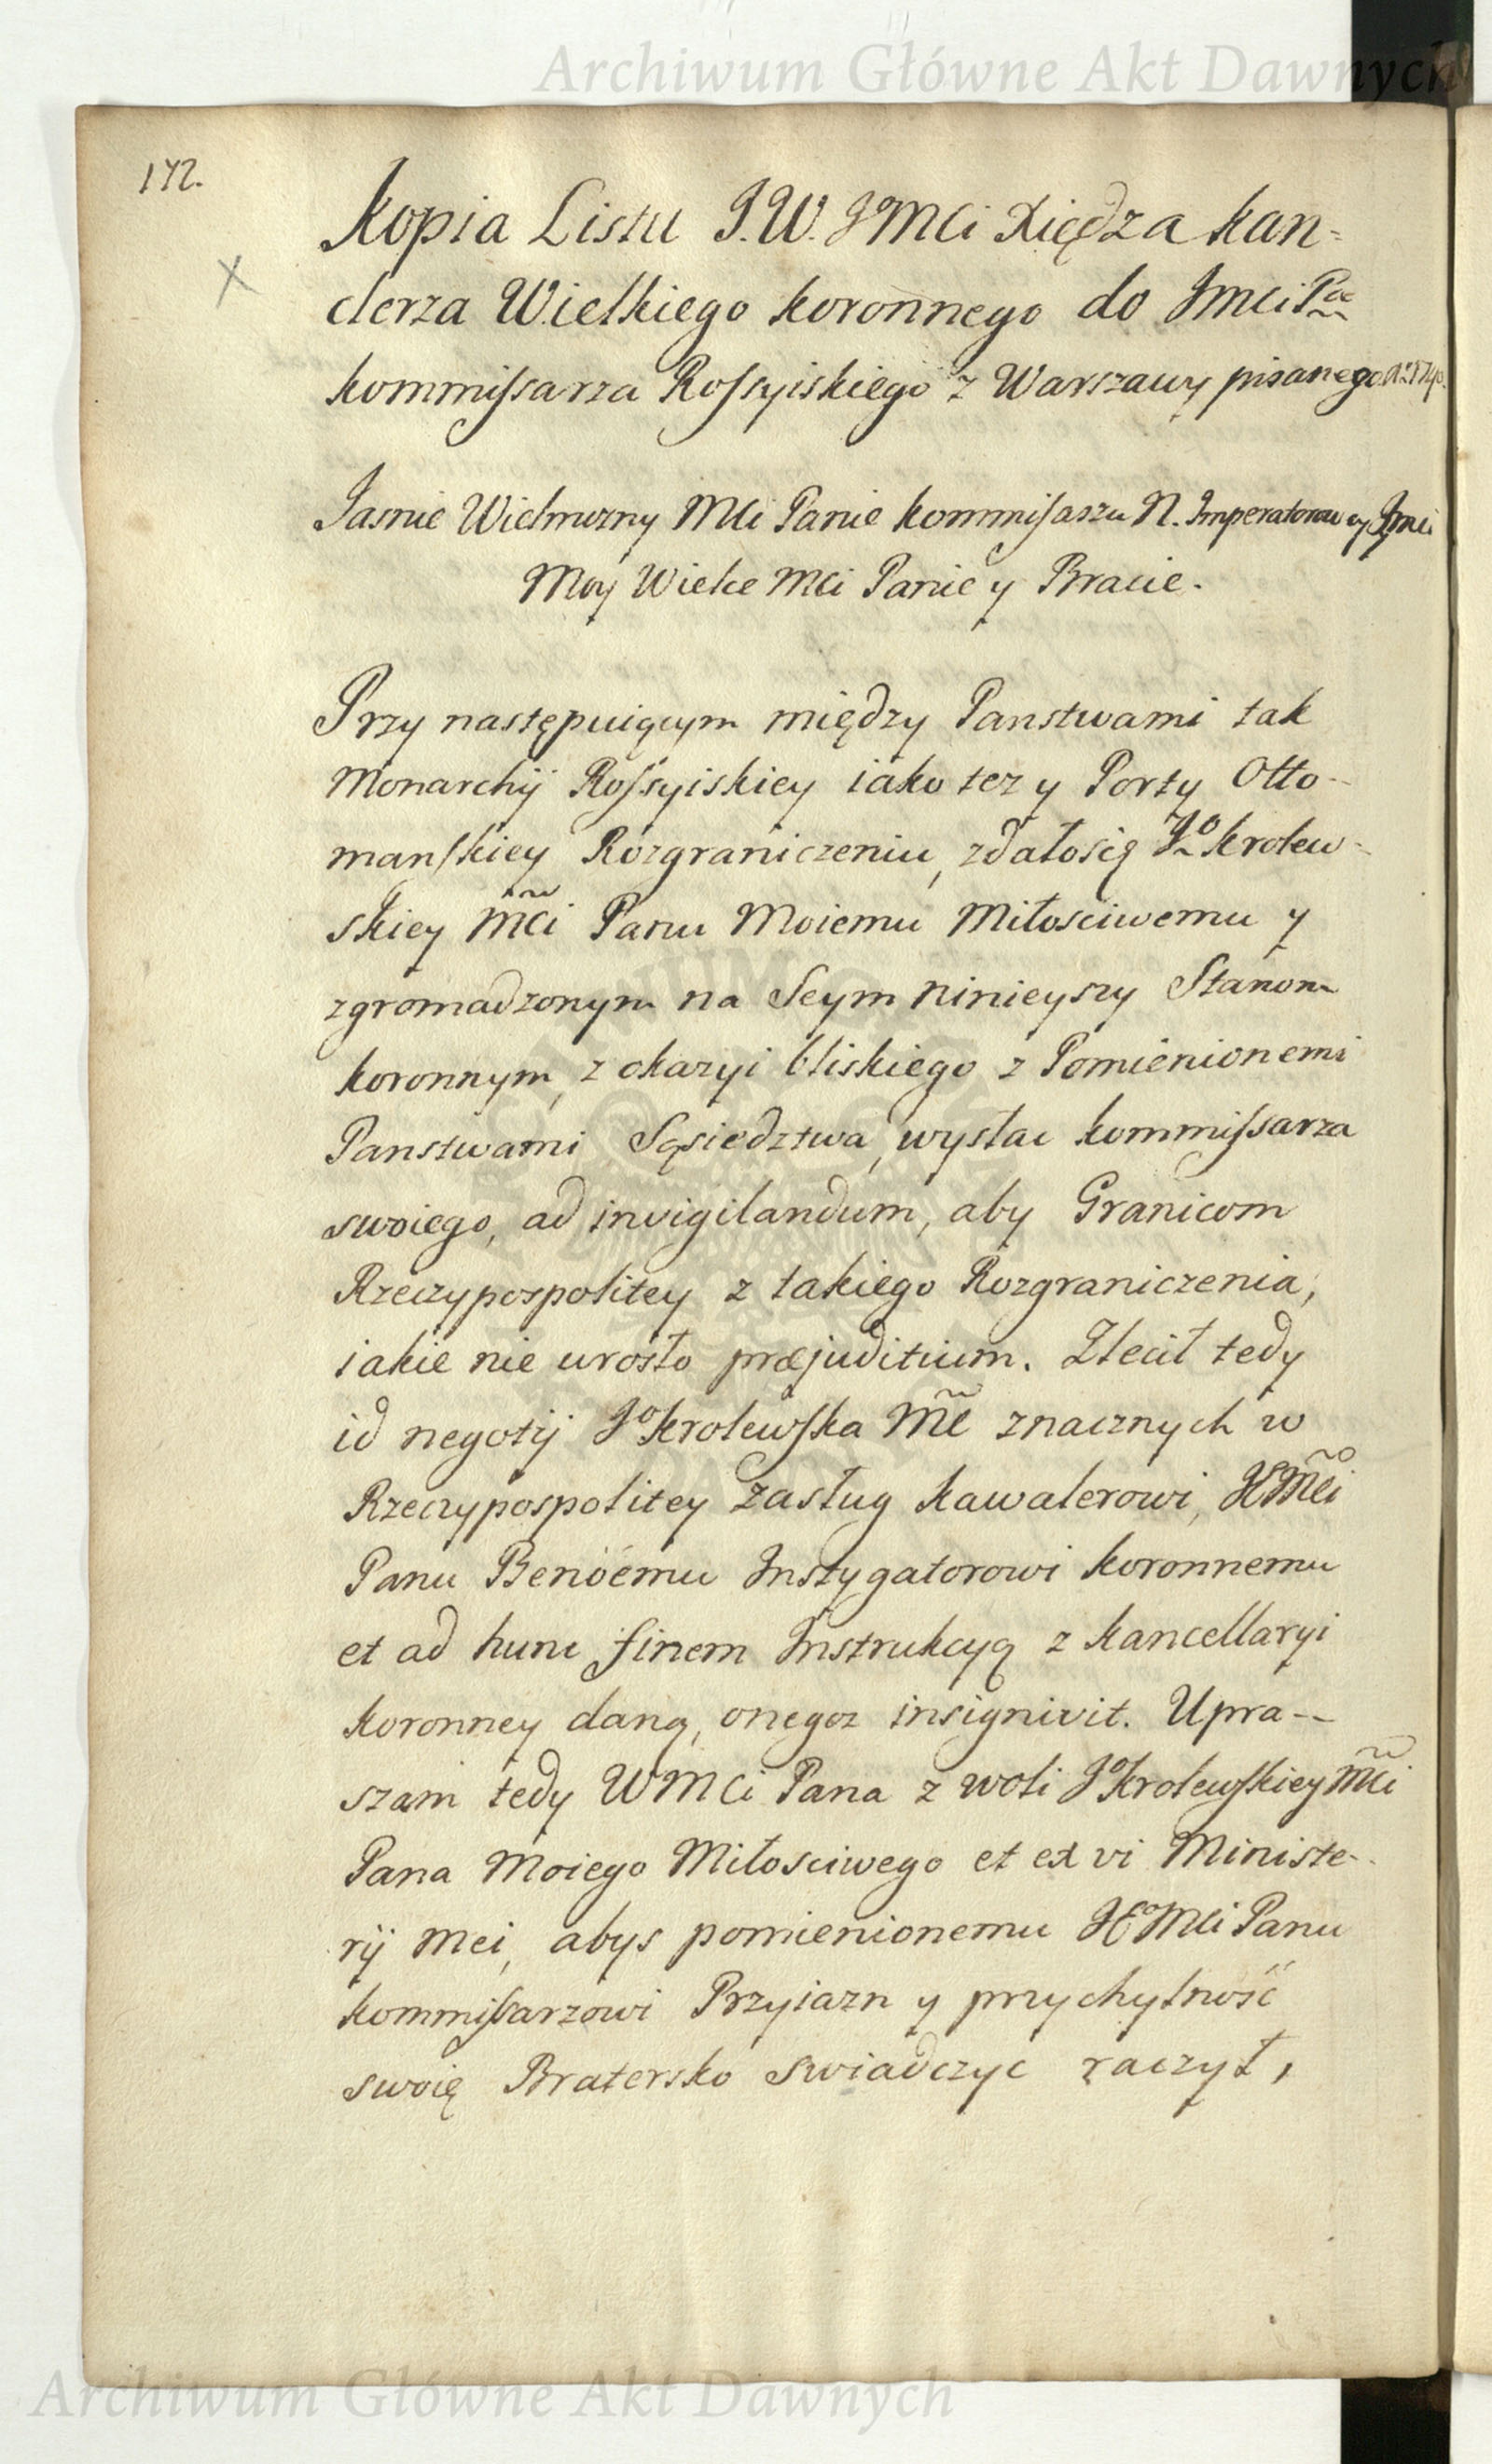 Archiwum Główne Akt Dawnych
172.
Kopia Listu J.W. JMCi Xiędza Kan=
clerza Wielkiego Koronnego do Jmci Pa
Kommissarza Rossyiskiego z Warszawy pisanego
Jasnie Wielmozny MCi Panie Kommissarzu N. Imperatorowey Jmci
Moy Wielce MCi Panie y Bracie.
Przy następuiącym między Panstwami tak
Monarchij Rossyiskiey iako tez y Porty Otto-
manskiey Rozgraniczeniu, zdałosię Jo Krolew-
skiey Mci Panu Moiemu Miłosciwemu y
zgromadzonym na Seym ninieyszy Stanom
Koronnym, z okazyi bliskiego z Pomienionemi
Panstwami Sąsiedztwa, wysłac Kommissarza
swoiego, ad invigilandum, aby Granicom
Rzeczypospolitey z takiego Rozgraniczenia,
iakie nie urosło præjuditium. Zlecił tedy
id negotij Jo Krolewska Mc znacznych w
Rzeczypospolitey zasług Kawalerowi, JMci
Panu Benoému Instygatorowi Koronnemu
et ad hunc finem Instrukcyą z Kancellaryi
Koronney daną, onegoz insignivit. Upra--
szam tedy WMCi Pana z woli Jo Krolewskiey Mci
Pana Moiego Miłosciwego et ex vi Ministe-
rij Mei, abys pomienionemu JoMCi Panu
Kommissarzowi Przyiazn y przychylność
swoię Bratersko swiadczyc raczył,
Archiwum Główne Akt Dawnych